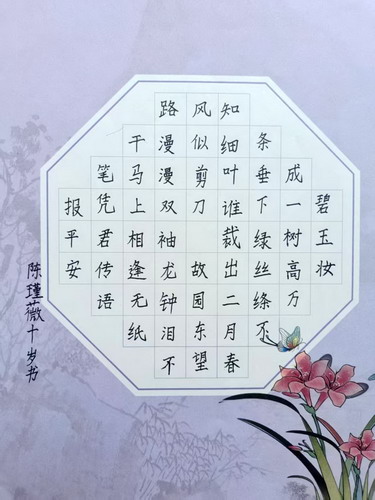 碧玉妆
成一树高万
条垂下绿丝绦不
知细叶谁裁出二月春
风似剪刀故园东望
路漫漫双袖龙钟泪不
干马上相逢无纸
笔凭君传语
报平安
陈瑾薇十岁书